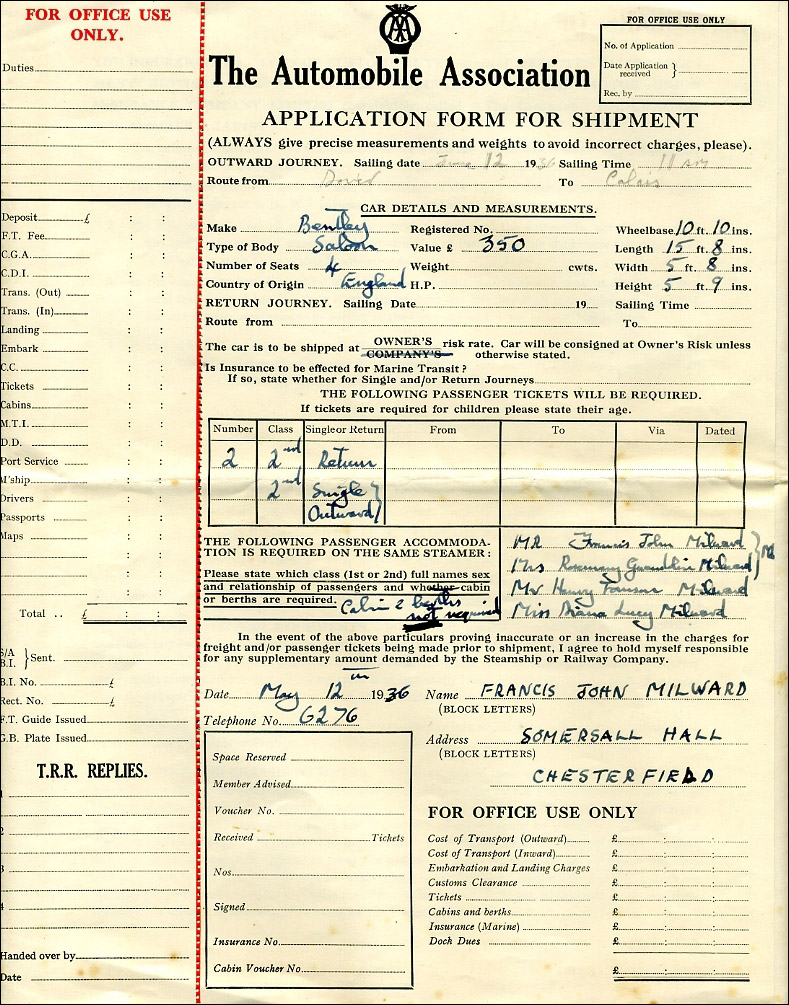 FOR OFFICE USE
ONLY.
Duties
Deposit £ : :
F.T. Fee : :
C.G.A. : :
C.D.I. : :
Trans. (Out) : :
Trans. (In) : :
Landing : :
Embark : :
C.C. : :
Tickets : :
Cabins : :
M.T.I. : :
D.D. : :
Port Service : :
M'ship : :
Drivers : :
Passports : :
Maps : :
Total .. £ : :
S/A
B.I. } Sent.
B.I. No. £
Rect. No. £
F.T. Guide Issued
G.B. Plate Issued
T.R.R. REPLIES.
1
2
3
4
Handed over by
Date
AA
The Automobile Association
FOR OFFICE USE ONLY
No. of Application
Date Application
received }
Rec. by
APPLICATION FORM FOR SHIPMENT
(ALWAYS give precise measurements and weights to avoid incorrect charges, please).
OUTWARD JOURNEY. Sailing date June 12 1936 Sailing Time 11 am
Route from Dover To Calais
CAR DETAILS AND MEASUREMENTS.
Make Bentley Registered No. Wheelbase 10 ft. 10 ins.
Type of Body Saloon Value £ 350 Length 15 ft. 8 ins.
Number of Seats 4 Weight cwts. Width 5 ft. 8 ins.
Country of Origin England H.P. Height 5 ft. 9 ins.
RETURN JOURNEY. Sailing Date 19 Sailing Time
Route from To
The car is to be shipped at OWNER'S COMPANY'S risk rate. Car will be consigned at Owner's Risk unless
otherwise stated.
Is Insurance to be effected for Marine Transit ?
If so, state whether for Single and/or Return Journeys
THE FOLLOWING PASSENGER TICKETS WILL BE REQUIRED.
If tickets are required for children please state their age.
Number Class Single or Return From To Via Dated
2 2nd Return
2nd Single }
Outward
THE FOLLOWING PASSENGER ACCOMMODA-
TION IS REQUIRED ON THE SAME STEAMER :
Please state which class (1st or 2nd) full names sex
and relationship of passengers and whether cabin
or berths are required. Cabin 2 berths
not required
MR Francis John Milward
Mrs Rosemary Gwendlin Milward
Mr Henry Milward
Miss Diana Lucy Milward
In the event of the above particulars proving inaccurate or an increase in the charges for
freight and/or passenger tickets being made prior to shipment, I agree to hold myself responsible
for any supplementary amount demanded by the Steamship or Railway Company.
Date May 12th 1936 Name FRANCIS JOHN MILWARD
(BLOCK LETTERS)
Telephone No. 6276
Address SOMERSALL HALL
(BLOCK LETTERS)
CHESTERFIELD
Space Reserved
Member Advised
Voucher No.
Received Tickets
Nos
Signed
Insurance No.
Cabin Voucher No.
FOR OFFICE USE ONLY
Cost of Transport (Outward) £ : :
Cost of Transport (Inward) £ : :
Embarkation and Landing Charges £ : :
Customs Clearance £ : :
Tickets £ : :
Cabins and berths £ : :
Insurance (Marine) £ : :
Dock Dues £ : :
£ : :